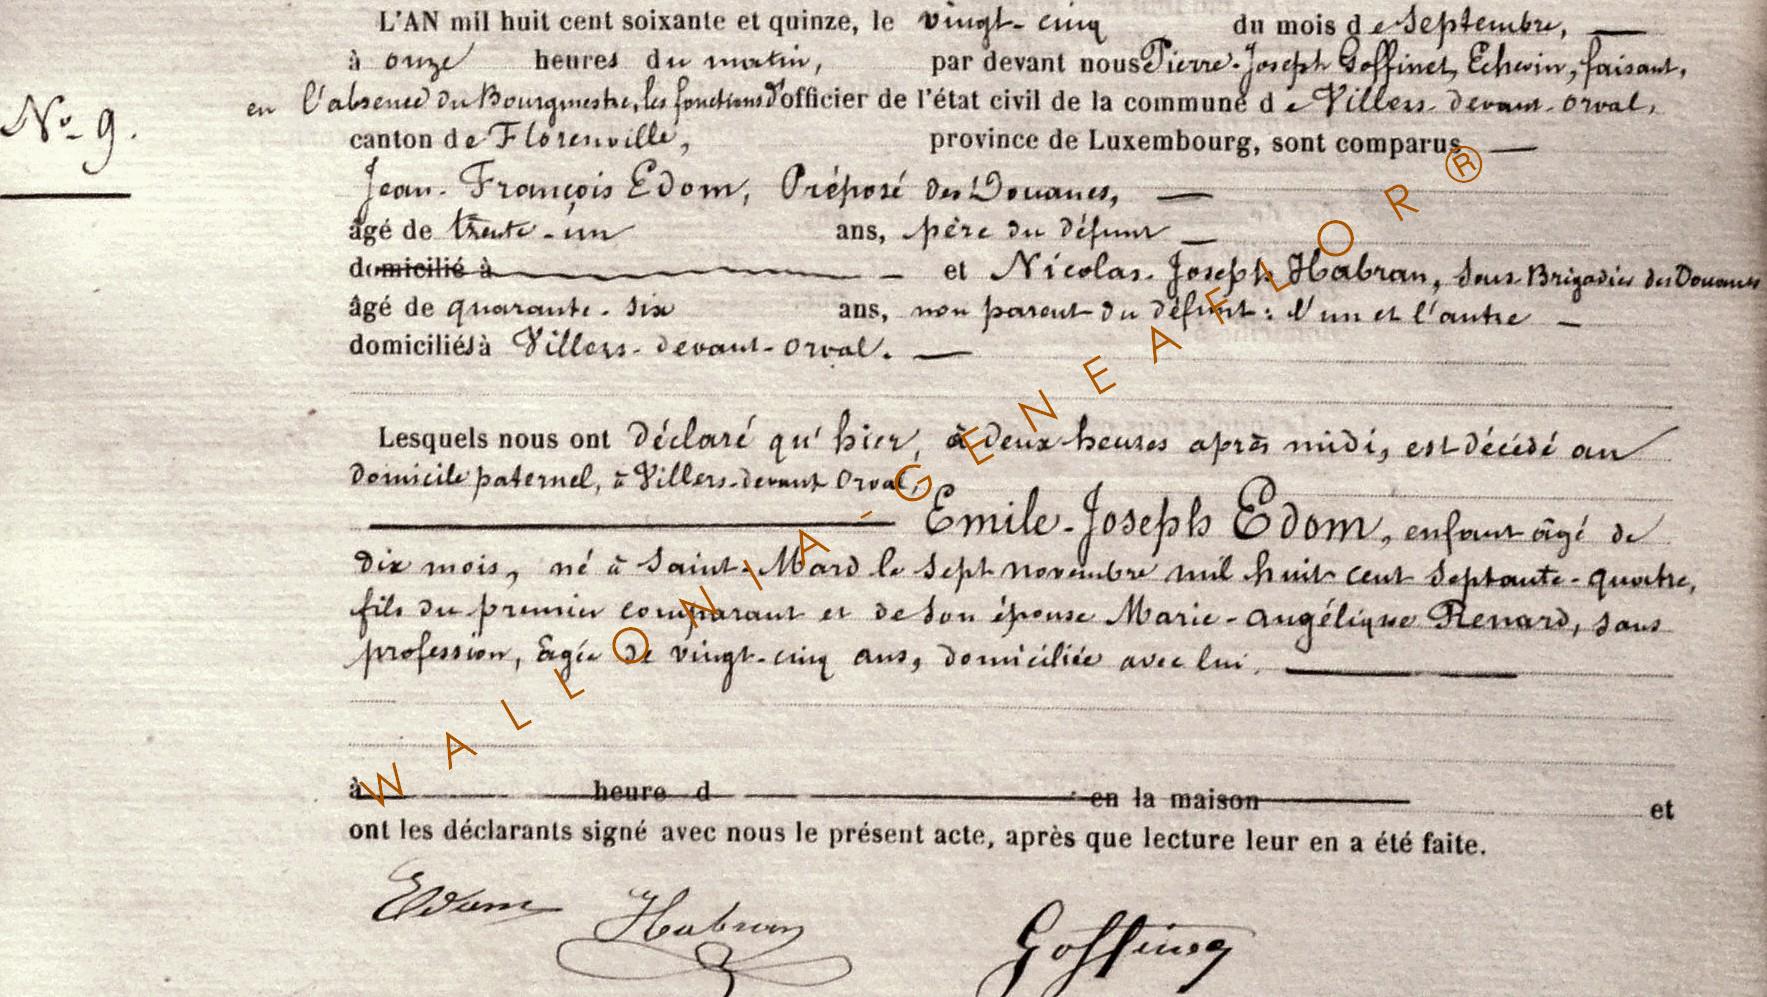 L'AN mil huit cent soixante et quinze, le vingt-cinq du mois de Septembre,
à onze heures du matin, par devant nous Pierre-Joseph Goffinet, Echevin, faisant,
en l'absence du Bourgmestre, les fonctions d'officier de l'état civil de la commune de Villers-devant-Orval,
N° 9.
canton de Florenville, province de Luxembourg, sont comparus
Jean-François Edom, Préposé des Douanes,
âgé de trente-un ans, père du défunt
domicilié à et Nicolas-Joseph Habran, Sous-Brigadier des Douanes
âgé de quarante-six ans, non parent du défunt : l'un et l'autre
domiciliés à Villers-devant-Orval.
Lesquels nous ont déclaré qu'hier, à deux heures après midi, est décédé au
domicile paternel, à Villers-devant-Orval,
Emile-Joseph Edom, enfant âgé de
dix mois, né à Saint-Mard le sept novembre mil huit cent septante-quatre,
fils du premier comparant et de son épouse Marie-Angélique Renard, sans
profession, âgée de vingt-cinq ans, domiciliée avec lui.
à heure d en la maison et
ont les déclarants signé avec nous le présent acte, après que lecture leur en a été faite.
Edom Habran Goffinet
WALLONIA-GENEAFLOR®